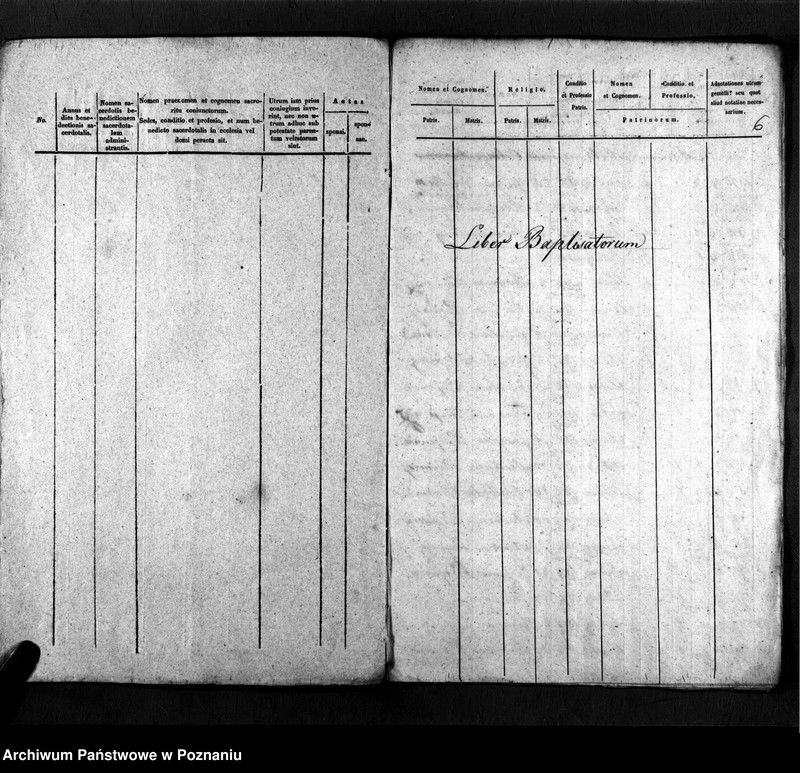 No.
Annus et
dies bene-
dectionis sa-
cerdotalis.
Nomen sa-
cerdotis be-
nedictionem
sacerdota-
lem
admini-
strantis.
Nomen praenomen et cognomen sacro-
ritu coniunctorum.
Sedes, conditio et professio, et num be-
nedicto sacerdotalis in ecclesia vel
domi peracta sit.
Utrum iam prius
coniugium inive-
rint, nec non u-
trum adhuc sub
potestate paren-
tum velstutorum
sint.
Aetas
sponsi.
spon-
sae.
Nomen et Cognomen.
Patris.
Matris.
Religio.
Patris.
Matris.
Conditio
et Professio
Patris.
Nomen
et Cognomen.
Conditio et
Professio,
Patrinorum.
Adnotationes utrum
gemelli? seu quot
aliud notatine neces-
sarium.
6
Liber Baptisatorum
Archiwum Państwowe w Poznaniu